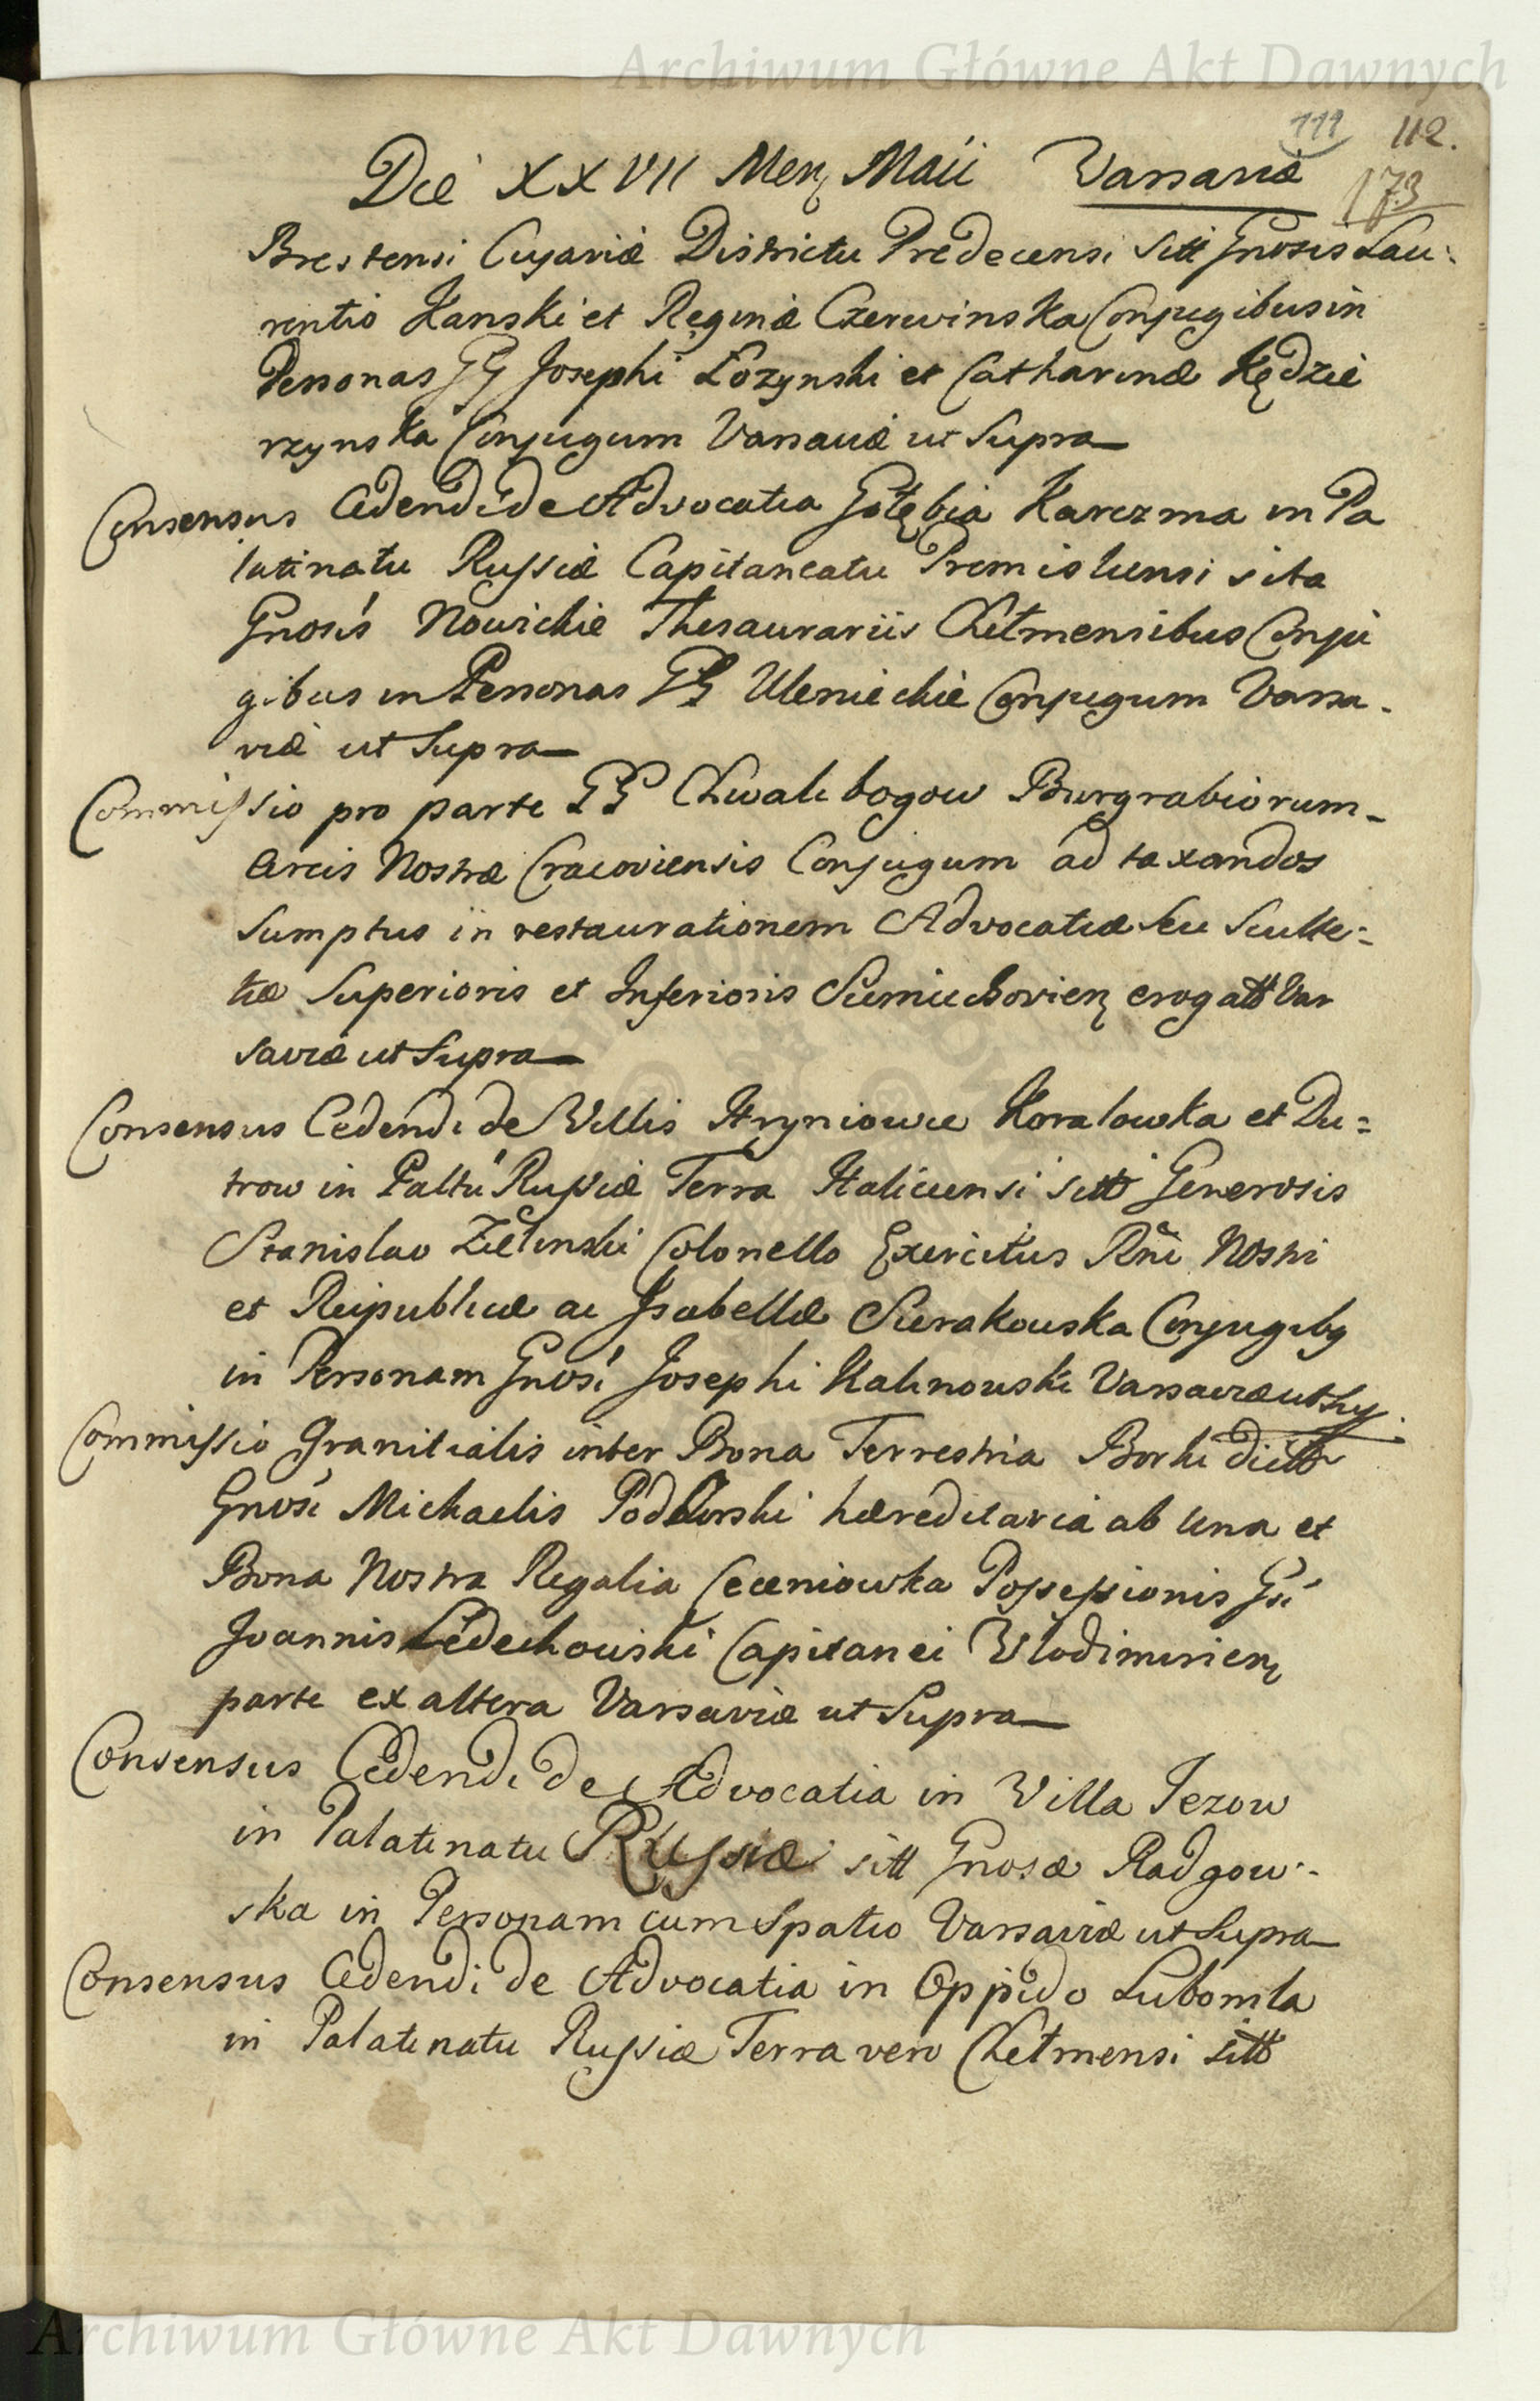 Archiwum Główne Akt Dawnych
111 112.
Die XXVII Men Maii Varsaviæ
173
Brestensi Cujaviæ Districtu Predecensi sitt Gnosis Lau:
rentio Kanski et Reginæ Czerewinska Conjugibus in
Personas GG Josephi Łozynski et Catharinæ Kędzie
rzynska Conjugum Varsaviæ ut Supra
Consensus Cedendi de Advocatia Gołębia Karczma in Pa
latinatu Russiæ Capitaneatu Premisliensi sita
Gnosis Nowickie Thesaurariis Chełmensibus Conju
gibus in Personas GG Ulenieckie Conjugum Varsa-
viæ ut Supra
Commissio pro parte GG Chwalibogow Burgrabiorum
Arcis Nostræ Cracoviensis Conjugum ad taxandos
Sumptus in restaurationem Advocatiæ Seu Sculte:
tiæ Superioris et Inferioris erogatt Var
saviæ ut Supra
Consensus Cedendi de Villis Hryniowce Koralowka et Du:
trow in Paltu Russiæ Terra Haliciensi sitt Generosis
Stanislao Zielinski Colonello Exercitus Rni Nostri
et Reipublicæ ac Isabellæ Sierakowska Conjugibg
in Personam Gnosi Josephi Kalinowski Varsaviæ ut Sup.
Commissio Granitialis inter Bona Terrestria Borki dictt
Gnosi Michaelis hæreditaria ab una et
Bona Nostra Regalia Ceceniowka Possessionis Gsi
Joannis Ledechowski Capitanei Wlodimirien
parte ex altera Varsaviæ ut Supra
Consensus Cedendi de Advocatia in Villa Jezow
in Palatinatu Russiæ sitt Gnosæ Radgow:
ska in Personam cum Spatio Varsaviæ ut Supra
Consensus Cedendi de Advocatia in Oppido Lubomla
in Palatinatu Russiæ Terra vero Chełmensi sitt
Archiwum Główne Akt Dawnych